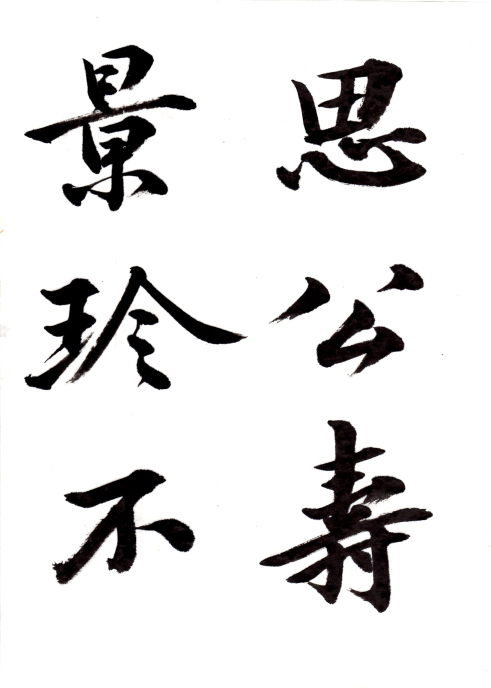 思公寿
景珍不